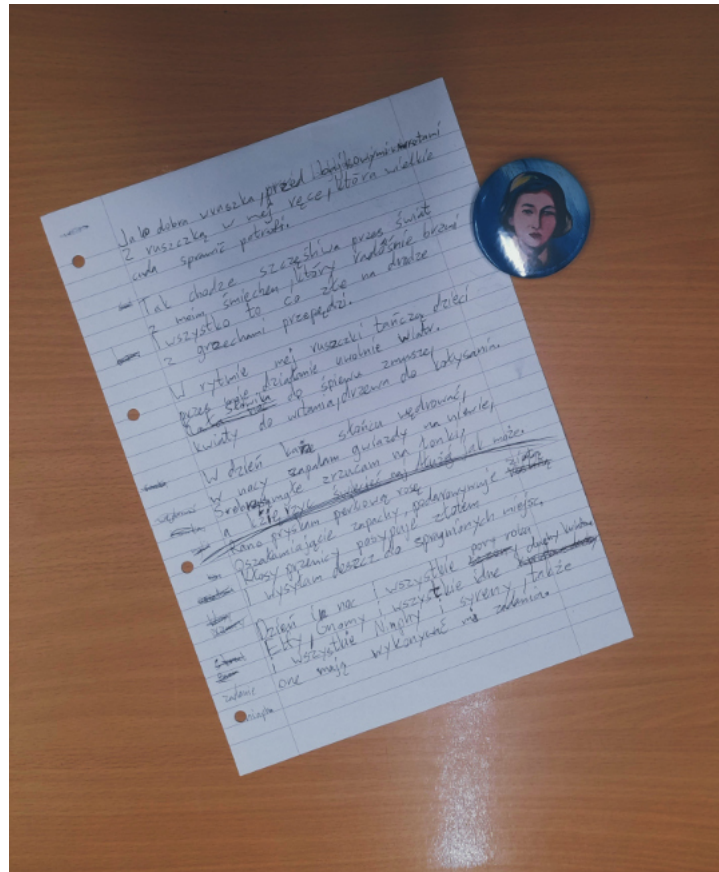 Jako dobra wruszka, przed bajkowymi wrotami
z ruszczką w mej ręce, która wielkie
cuda sprawić potrafi.
Tak chodze szczęśliwa przez świat
z moim śmiechem, który radośnie brzmi
i wszystko to co złe na drodze
z grzechami przepędzi.
W rytmie mej ruszczki tańczą dzieci
przez moje działanie uwolnie wiatr.
do śpiewu zmuszę,
kwiaty do witania, drzewa do kołysania.
W dzień każe słońcu wędrować,
w nocy zapalam gwiazdy na niebie,
Srebrną mgłe zrzucam na łonki,
a księżyc świecić naj dłużej jak może.
Rano pryskam perłową rosę
Oszałamiające zapachy podarowynuje
Kłosy pszenicy posypuje złotem
i wysyłam deszcz do spragnionych miejsc.
Dzień i noc i wszystkie pory roku
Elfy, Gnomy i wszystkie inne duchy
i wszystkie Nimphy i syreny, także
one mają wykonywać me zadania.
zadanie